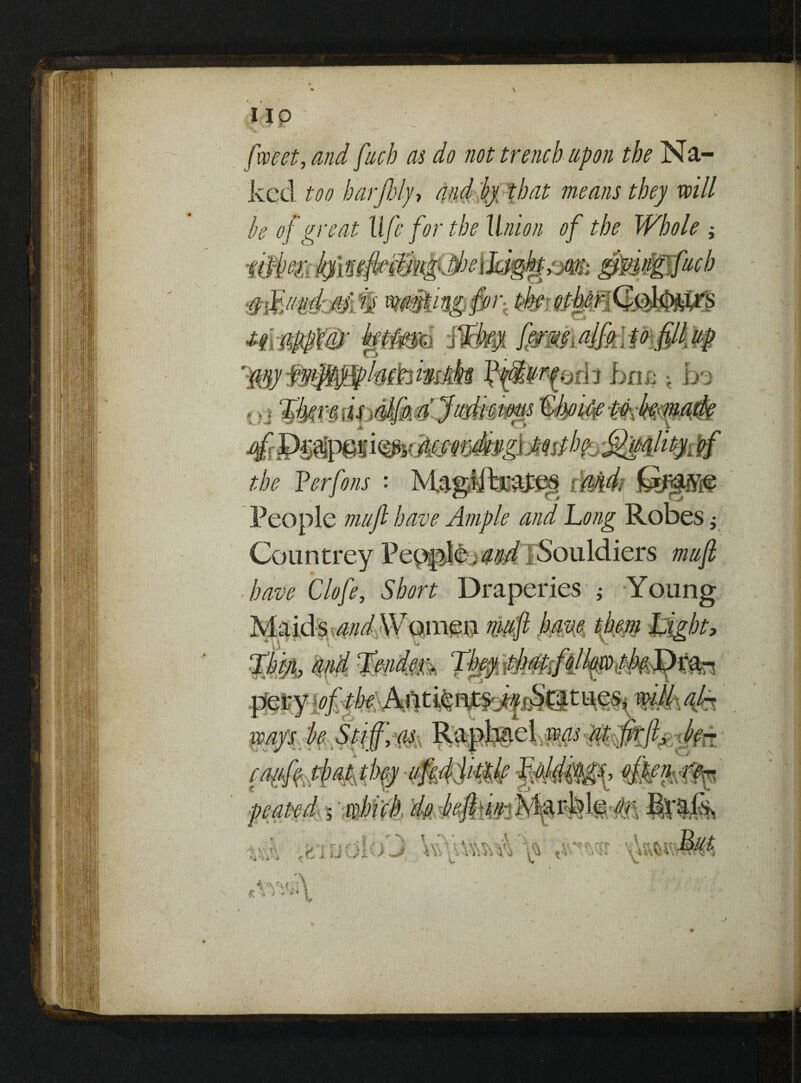 110
ſweet, and ſuch as do not trench upon the Na-
ked too harſhly, and by that means they will
be of great Uſe for the Union of the Whole ;
either by reflecting the Light, or giving ſuch
a Fund as is wanting for the other Colours
to appear better. They ſerve alſo to fill up
any empty place in the Picture.
There is alſo a Judicious Choice to be made
of Draperies, according to the Quality of
the Perſons : Magiſtrates and Grave
People muſt have Ample and Long Robes ;
Countrey People and Souldiers muſt
have Cloſe, Short Draperies ; Young
Maids and Women muſt have them Light,
Thin, and Tender. They that follow the Dra-
pery of the Antients in Statues, will al-
ways be Stiff, as Raphael was at firſt, be-
cauſe that they uſed little Foldings, often re-
peated ; which do beſt in Marble or Braſs.
But